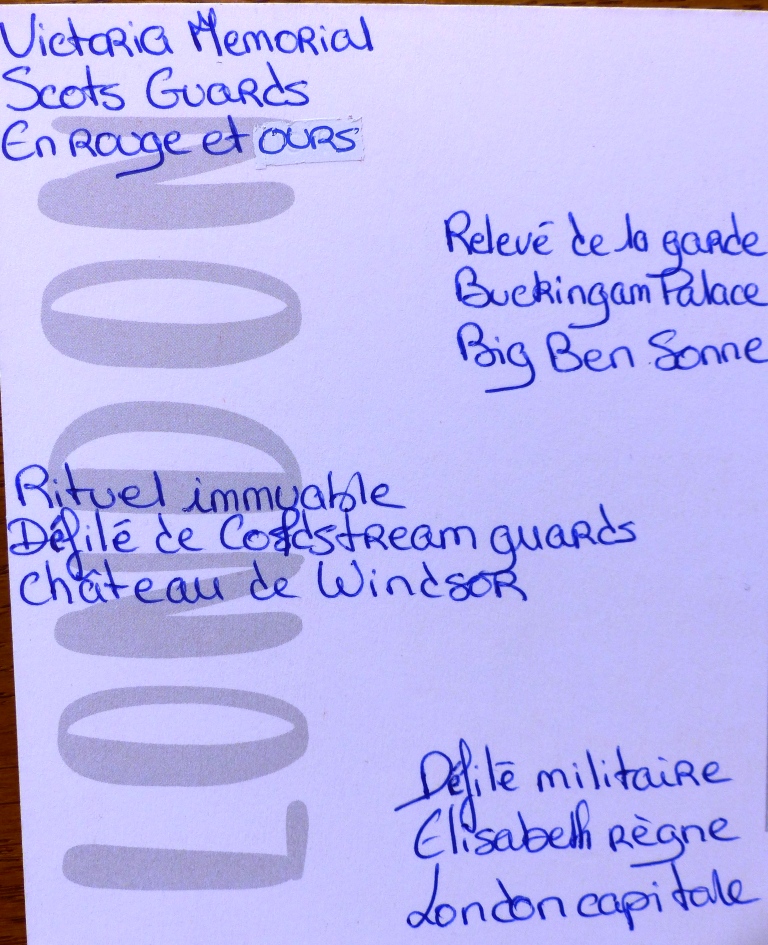 Victoria Memorial
Scots Guards
En rouge et ours
Relevé de la garde
Buckingam Palace
Big Ben Sonne
Rituel immuable
Défilé de Coldstream guards
Château de Windsor
Défilé militaire
Elisabeth règne
London capitale
LONDON